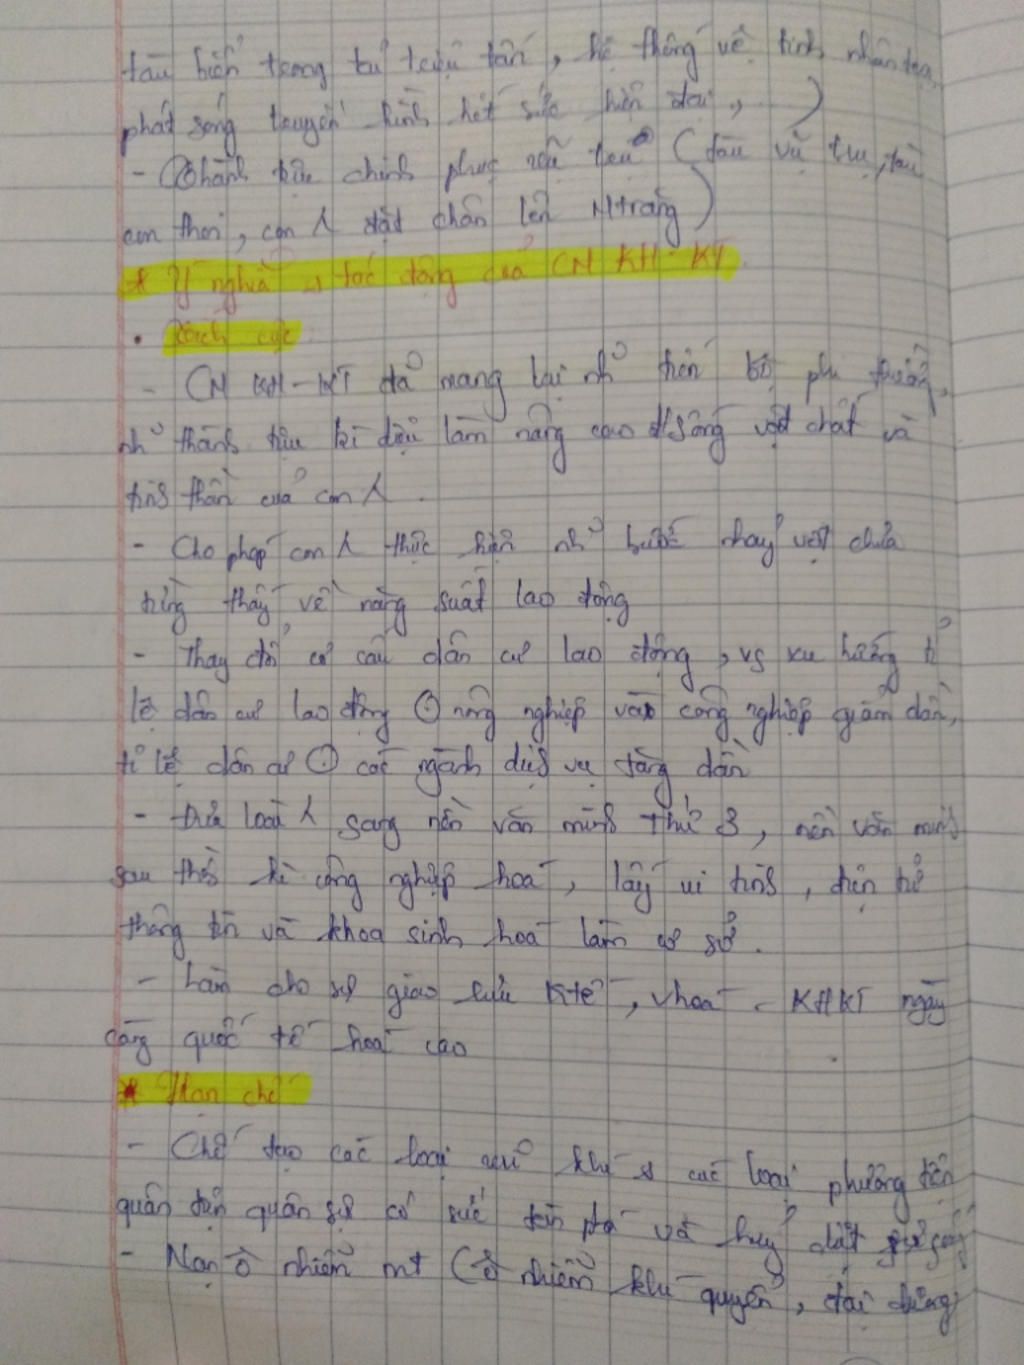 tàu biển trọng tải triệu tấn, hệ thống vệ tinh nhân tạo
phát sóng truyền hình hết sức hiện đại,)
- Thành tựu chinh phục vũ trụ (tàu vũ trụ, tàu
con thoi, con λ đặt chân lên Mtrăng)
* Ý nghĩa và tác động của CM KH-KT
• Tích cực
- CM KH-KT đã mang lại nh~ tiến bộ phi thường,
nh~ thành tựu kì diệu làm nâng cao đ/sống vật chất và
tinh thần của con λ.
- Cho phép con λ thực hiện nh~ bước nhảy vọt chưa
từng thấy về năng suất lao động
- Thay đổi cơ cấu dân cư lao động, vs xu hướng tỉ
lệ dân cư lao động ⊙ nông nghiệp và công nghiệp giảm dần,
tỉ lệ dân cư ⊙ các ngành dịch vụ tăng dần
- Đưa loài λ sang nền văn minh thứ 3, nền văn minh
sau thời kì công nghiệp hoá, lấy vi tính, điện tử
thông tin và khoa sinh hoá làm cơ sở.
- Làm cho sự giao lưu Ktế, vhoá, KHKT ngày
càng quốc tế hoá cao
* Hạn chế
- Chế tạo các loại vũ khí và các loại phương tiện
quân sự có sức tàn phá và huỷ diệt sự sống
- Nạn ô nhiễm mt (ô nhiễm khí quyển, đại dương,